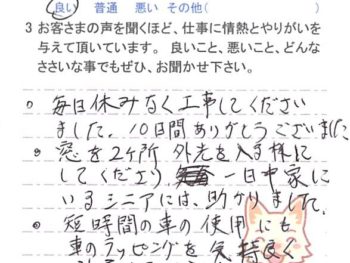 良い 普通 悪い その他( )
3 お客さまの声を聞くほど、仕事に情熱とやりがいを
与えて頂いています。 良いこと、悪いこと、どんな
ささいな事でもぜひ、お聞かせ下さい。
○ 毎日休みなく工事してください
ました。10日間ありがとうございました
○ 窓を2ヶ所 外光を入る様に
してくださり 一日中家に
いるシニアには、助かりました。
○ 短時間の車の使用にも
車のラッピングを気持良く